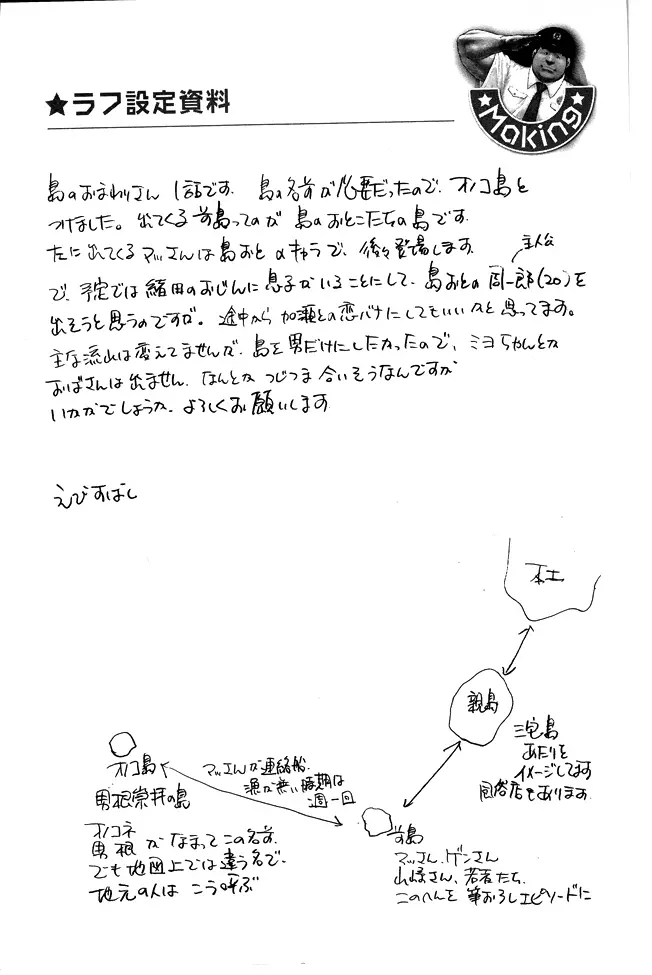 ★ラフ設定資料
★Making★
島のおまわりさん 1話です. 島の名前が必要だったので、オノコ島と
つけました。出てくる前島ってのが 島のおとこたちの島です.
たに出てくるマッさんは島おと αキャラで、後々登場します.
主人公
で、予定では緒田のおじんに息子がいることにして、島おとの周一郎(20)を
出そうと思うのですが。途中から加瀬との恋バナにしてもいいかと思ってます。
主な流れは変えてませんが、島を男だけにしたかったので、ミヨちゃんとか
おばさんは出ません. なんとか つじつま合いそうなんですが
いかがでしょうか. よろしくお願いします
えびすばし
本土
親島
三宅島
あたりを
イメージしてます
風俗店もあります.
オノコ島
男根崇拝の島
マッさんが連絡船.
漁が無い時期は
週一回
オノコネ
男根 がなまってこの名前.
でも地図上では違う名で.
地元の人は こう呼ぶ
前島
マッさん、ゲンさん
山崎さん、若者たち.
このへんを 筆おろしエピソードに